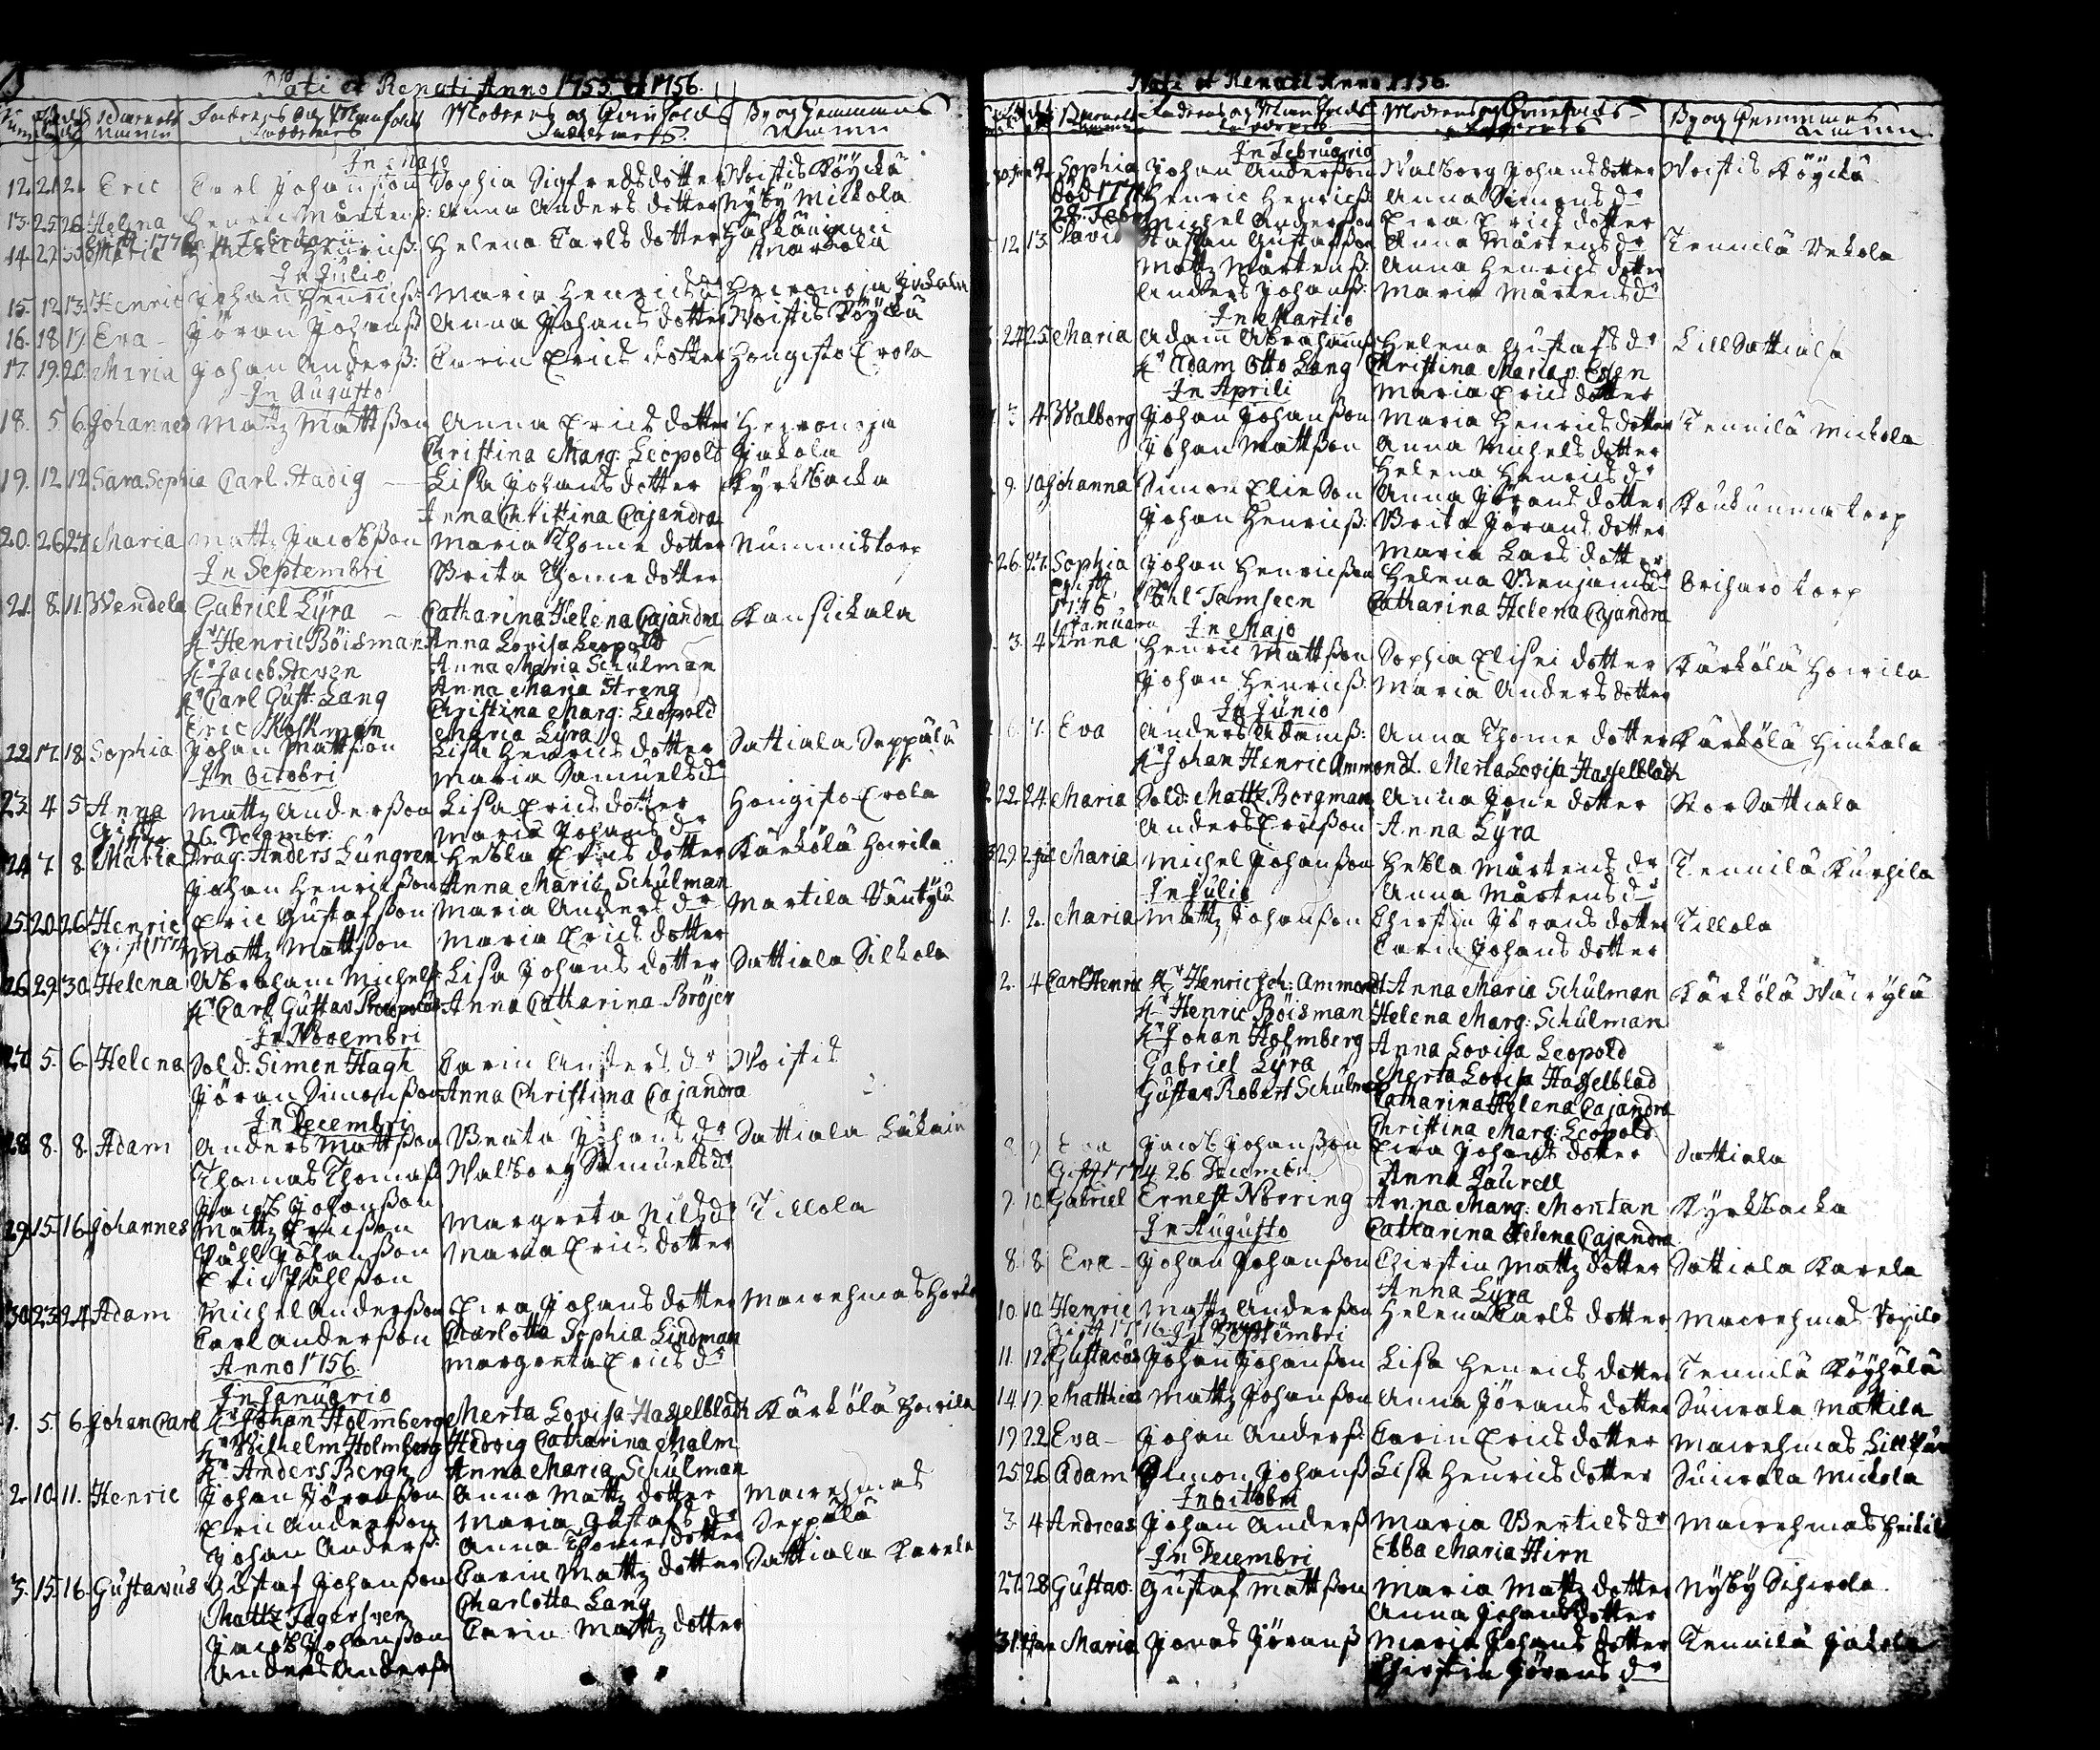 Nati et Renati Anno 1755 et 1756.
In Majo
12. 21. 2. Eric Carl Johansson Sophia Sigfredsdotter Woistis Köyckä
13. 25 26. Helena Henric Mårtenß: Anna Anders dotter Nyby Mickola
14. 27. Maria Henric Henricß: Helena Carls dotter Markola
In Julio
15. 12 13. Henric Johan Henricß: Maria Henrics dr Heironoja Jackola
16. 18 19. Eva Jöran Johanß Anna Johans dotter Woistis Köyckä
17. 19. 20. Maria Johan Anderß: Carin Erics dotter Hongisto Erola
In Augusto
18. 5 6. Johannes Mattz Mattßon Anna Erics dotter Heironoja
Christina Marg: Leopold Jackola
19. 12 12. Sara Sophia Carl Stadig Lisa Johans dotter Kyrkbacka
Anna Christina Cajandra
20. 26 27. Maria Mattz Jacobßon Maria Thome dotter Nummistorp
In Septembri Brita Thome dotter
21. 8. 11. Wendela Gabriel Lyra Catharina Helena Cajandra Kansickala
Hr Henric Böisman Anna Lovisa Leopold
Hr Jacob Steven Anna Maria Schulman
Hr Carl Gust: Lang Anna Maria Streng
Christina Marg: Leopold
Eric Koskman Maria Lyra
22. 17. 18. Sophia Johan Mattßon Lisa Henrics dotter Sattiala Seppälä
In Octobri Maria Samuels dr
23. 4 5 Anna Mattz Anderßon Lisa Erics dotter Hongisto Erola
Gift 26. Decembr: Maria Johans dr
24. 7 8. Maria Drag: Anders Lungren Hebla Erics dotter Kärkölä Hoirila
Johan Henricßon Anna Maria Schulman
25. 20. 26. Henric Eric Gustafßon Maria Anders dr Martila Väntylä
Mattz Mattßon Maria Erics dotter
26. 29. 30. Helena Abraham Michelß Lisa Johans dotter Sattiala Silkola
Hr Carl Gustav Procopæus Anna Catharina Bröjer
In Novembri
27. 5. 6. Helena Sold: Simon Hagh Carin Anders dr Woistis
Jöran Simonßon Anna Christina Cajandra
In Decembri
28. 8. 8. Adam Anders Mattßon Beata Johans dr Sattiala
Thomas Thomaß Walborg Samuels dr
Jacob Johanßon
29. 15. 16. Johannes Mattz Ericßon Margreta Nils dr Tillola
Påhl Johanßon Maria Erics dotter
Eric Påhlßon
30. 23. 24. Adam Michel Anderßon Eva Johans dotter Mairehmas
Carl Anderßon Charlotta Sophia Lindman
Anno 1756. Margreta Erics dr
In Januario
1. 5. 6. Johan Carl Hr Johan Holmberg Merta Lovisa Hasselbladh Kärkölä Hoirila
Hr Wilhelm Holmberg Hedvig Catharina Malm
Hr Anders Bergh Anna Maria Schulman
2. 10. 11. Henric Johan Jöranßon Anna Mattz dotter Mairehmas
Eric Anderßon Maria Gustafs dr Seppälä
Johan Anderß: Anna Thome dotter
3. 15. 16. Gustavus Gustaf Johanßon Carin Mattz dotter Sattiala Karela
Mattz Fagersven Charlotta Lang
Jacob Johanßon Carin Mattz dotter
Anders Anderß
Nati et Renati Anno 1756.
In Februario
Sophia Johan Anderßon Walborg Johans dotter Woistis Köyckä
död Henric Henricß Anna Simons dr
28: Febr Michel Anderßon Eva Erics dotter
12. 13. David Staffan Gustafßon Anna Mårtens dr Tennilä Uckola
Mattz Mårtenß: Anna Henrics dotter
Anders Johanß: Maria Mårtens dr
In Martio
24 25. Maria Adam Abrahamß Helena Gustafs dr Lill Sattiala
Hr Adam Otto Lang Christina Maria
In Aprili Maria Erics dotter
3 4. Walborg Johan Johanßon Maria Henrics dotter Tennilä Mickola
Johan Mattßon Anna Michels dotter
Helena Henrics dr
9. 10. Johanna Simon Elie Son Anna Jörans dotter Koukunma torp
Johan Henricß: Brita Jörans dotter
Maria Lars dotter
26. 27. Sophia Johan Henricßon Helena Benjamins dr torp
Påhl Tamseen Catharina Helena Cajandra
In Majo
3. 4. Anna Henric Mattßon Sophia Elisei dotter Kärkölä Hoirila
Johan Henricß: Maria Anders dotter
In Junio
6. 7. Eva Anders Adamß: Anna Thome dotter Kärkölä Hinkala
Hr Johan Henric Ammondt. Merta Lovisa Hasselbladh
22. 24. Maria Sold: Mattz Borgman Anna Jone dotter Stor Sattiala
Anders Ericßon Anna Lyra
29. 2 Jul Maria Michel Johanßon Hebla Mårtens dr Tennilä Kurhila
In Julio Anna Mårtens dr
1. 2. Maria Mattz Johanßon Chirstin Jörans dotter Tillola
Carin Johans dotter
2. 4 Carl Henric Hr Henric Joh: Ammondt Anna Maria Schulman Kärkölä
Hr Henric Böisman Helena Marg: Schulman
Hr Johan Holmberg Anna Lovisa Leopold
Gabriel Lyra Merta Lovisa Hasselblad
Gustav Robert Schulman Catharina Helena Cajandra
Christina Marg: Leopold
8. 9. Eva Jacob Johanßon Eva Johans dotter Sattiala
Gift 1774 26 December Anna Laurell
9. 10. Gabriel Ernest Norring Anna Marg: Montan Kyrkbacka
In Augusto Catharina Helena Cajandra
8. 8. Eva Johan Johanßon Chirstin Mattz dotter Sattiala Karela
Anna Lyra
10. 10. Henric Mattz Anderßon Helena Carls dotter Mairehmas
In Septembri
11. 12. Gustavus Johan Johanßon Lisa Henrics dotter Tennilä Köyhälä
14. 17. Matthias Mattz Johanßon Anna Jörans dotter Suirala Mattila
19. 22. Eva Johan Anderß: Carin Erics dotter Mairehmas
25. 26. Adam Simon Johanß: Lisa Henrics dotter Suirala Mickola
In Octobri
3. 4. Andreas Johan Anderß Maria Bertils dr Mairehmas Heikil
In Decembri Ebba Maria Hirn
27. 28. Gustav: Gustaf Mattßon Maria Mattz dotter Nyby
Anna Johans dotter
31. Maria Jonas Jöranß Maria Johans dotter Tennilä Jackola
Chirstin Jörans dr